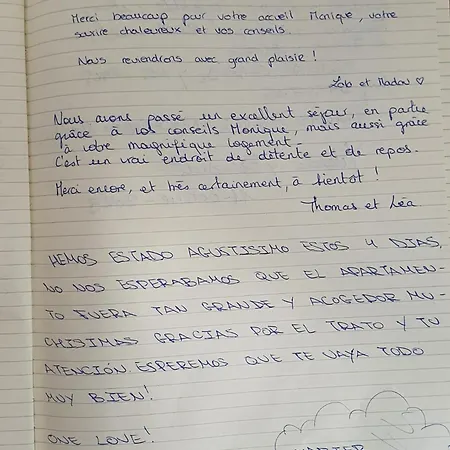 Merci beaucoup pour votre accueil Monique, votre
sourire chaleureux et vos conseils.
Nous reviendrons avec grand plaisir !
et Madou ♡
Nous avons passé un excellent séjour, en partie
grâce à vos conseils Monique, mais aussi grâce
à votre magnifique logement.
C'est un vrai endroit de détente et de repos.
Merci encore, et très certainement, à bientôt !
Thomas et Léa
HEMOS ESTADO AGUSTISIMO ESTOS 4 DIAS,
NO NOS ESPERABAMOS QUE EL APARTAMEN-
TO FUERA TAN GRANDE Y ACOGEDOR MU-
CHISIMAS GRACIAS POR EL TRATO Y TU
ATENCIÓN. ESPEREMOS QUE TE VAYA TODO
MUY BIEN!
ONE LOVE!